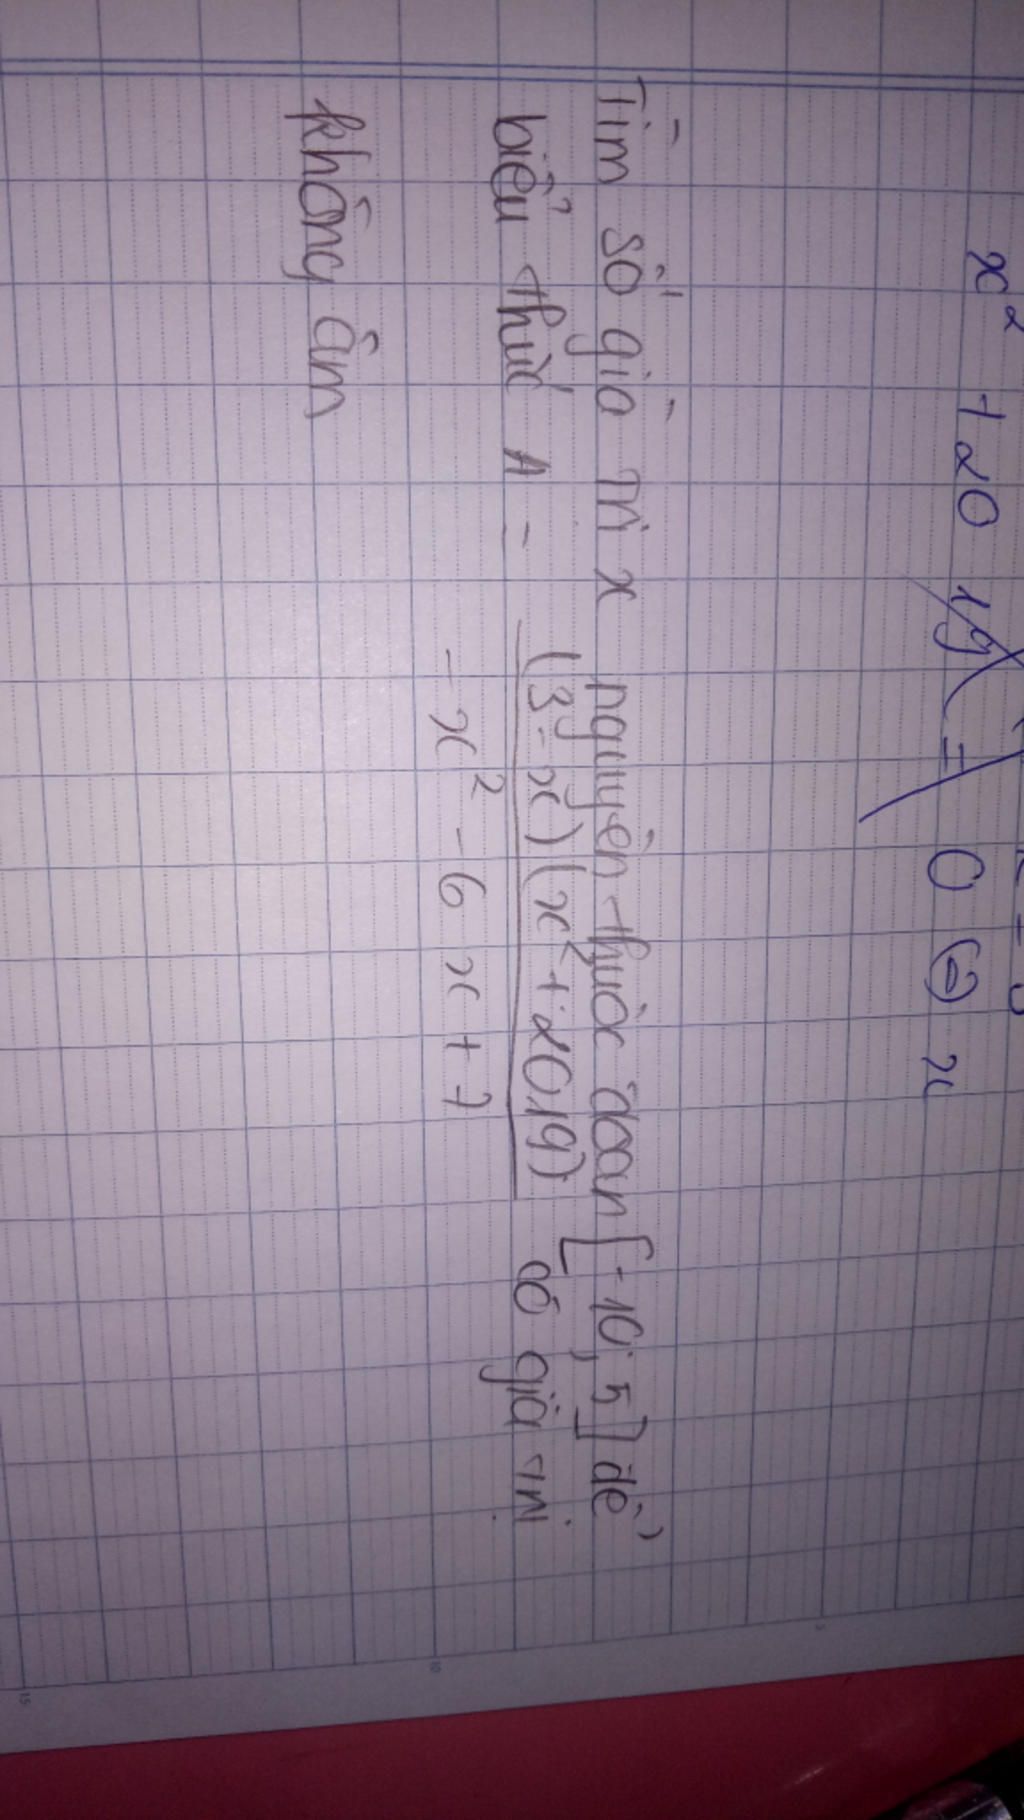 x² + 20 19 = 0 ⊖ x
Tìm số giá trị x nguyên thuộc đoạn [-10; 5] để
biểu thức A = (3-x)(x²+2019) có giá trị
-x² - 6x + 7
không âm